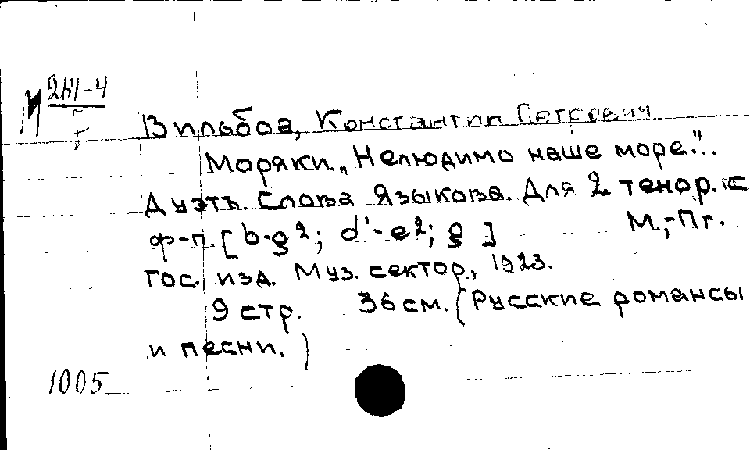 М
Вильбоа, Константин Петрович
Моряки. „Нелюдимо наше море."..
Дуэтъ. Слова Языкова. Для 2 тенор. с
ф-п. [b-g²; d'-e²; g] М.,-Пг.
гос. изд. Муз. сектор., 1923.
9 стр. 36 см. (Русские романсы
и песни.)
1005